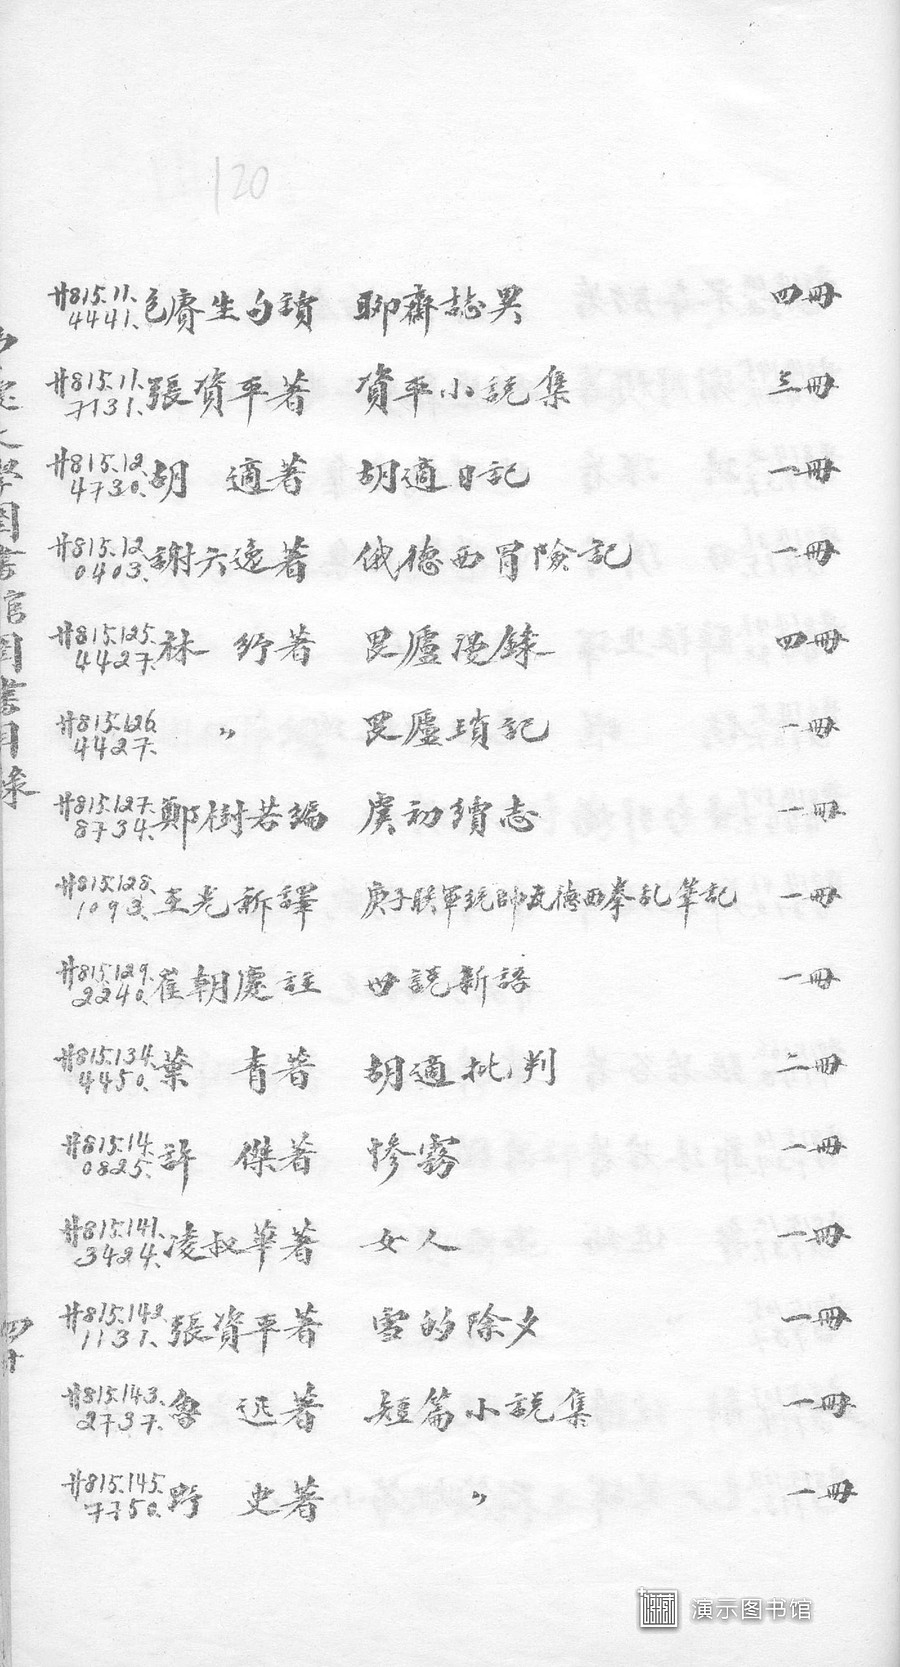 120
廿815.11. 4441. 包賡生句讀 聊齋誌異 四冊
廿815.11. 7131. 張資平著 資平小說集 三冊
廿815.12. 4730. 胡 適著 胡適日記 一冊
廿815.12. 0403. 謝六逸著 俄德西冒險記 一冊
廿815.125. 4427. 林 紓著 畏廬漫錄 四冊
廿815.126. 4427. 〃 畏廬瑣記 一冊
廿815.127. 8734. 鄭樹若編 虞初續志 一冊
廿815.128. 1093. 王光祈譯 庚子联軍統帥瓦德西拳乱筆記 一冊
廿815.129. 2240. 崔朝慶註 世說新語 一冊
廿815.134. 4450. 葉 青著 胡適批判 二冊
廿815.14. 0825. 許 傑著 慘霧 一冊
廿815.141. 3424. 凌叔華著 女人 一冊
廿815.142. 1131. 張資平著 雪的除夕 一冊
廿815.143. 2737. 魯 迅著 短篇小說集 一冊
廿815.145. 7750. 野 史著 〃 一冊
文學圖書館圖書目錄
四十
演示图书馆